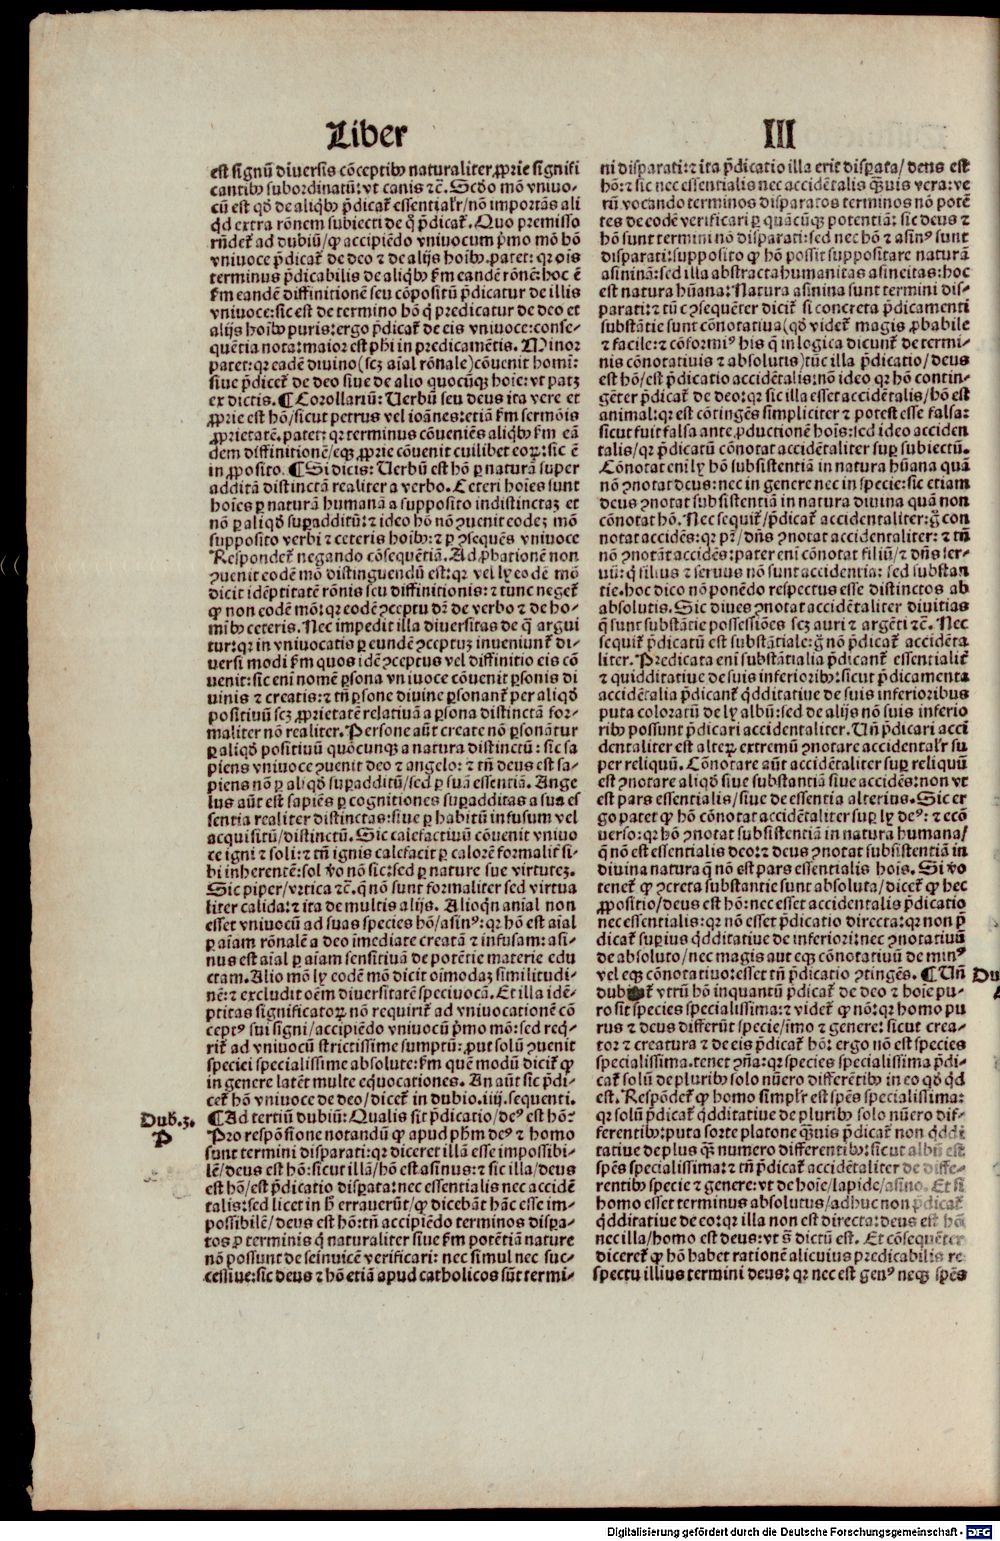 Liber
III
est signū diuersis cōceptibꝰ naturaliter ꝓprie signifi
cantibꝰ subordinatū: vt canis ⁊c̄. Scd̄o mō vniuo-
cū est qd̄ de aliqͥbꝰ p̄dicat᷑ essential'r/ nō importās ali
qͥd extra rōnem subiecti de q̄ p̄dicat᷑. Quo premisso
rn̄det᷑ ad dubiū/ ꝙ accipiēdo vniuocum pͥmo mō hō
vniuoce p̄dicat᷑ de deo ⁊ de alijs hoībꝰ. patet: qꝛ oīs
terminus p̄dicabilis de aliqͥbꝰ ẜm eandē rōnē: hoc ē
ẜm eandē diffinitionē seu cōpositū p̄dicatur de illis
vniuoce: sic est de termino hō qͥ predicatur de deo et
alijs hoībꝰ puris: ergo p̄dicat᷑ de eis vniuoce: conse-
quētia nota: maior est phī in predicamētis. Minor
patet: qꝛ eadē diuino (scꝫ aīal rōnale) cōuenit homī:
siue p̄dicet᷑ de deo siue de alio quocūqꝫ hoīe: vt patꝫ
ex dictis. ¶ Corollariū: Uerbū seu deus ita vere et
ꝓprie est hō/ sicut petrus vel ioānes: etiā ẜm sermōis
ꝓprietatē. patet: qꝛ terminus cōueniēs aliqͥbꝰ ẜm eā
dem diffinitionē/ eqꝫ ꝓprie cōuenit cuilibet eoꝝ: sic ē
in ꝓposito. ¶ Si dicis: Uerbū est hō ꝑ naturā super
additā distinctā realiter a verbo. Ceteri hoīes sunt
hoīes ꝑ naturā humanā a supposito indistinctaꝫ et
nō ꝑ aliqd̄ suꝑadditū: ⁊ ideo hō nō ꝯuenit eodeꝫ mō
supposito verbi ⁊ ceteris hoībꝰ: ⁊ ꝑ ꝯseqn̄s vniuoce
Respondet᷑ negando cōsequētiā. Ad ꝓbationē non
ꝯuenit eodē mō distinguendū est: qꝛ vel ly eodē mō
dicit idēptitatē rōnis seu diffinitionis: ⁊ tunc neget᷑
ꝙ non eodē mō: qꝛ eodē ꝯceptu dꝛ̄ de verbo ⁊ de ho-
mībꝰ ceteris. Nec impedit illa diuersitas de q̄ argui
tur: qꝛ in vniuocatis ꝑ eundē ꝯceptuꝫ inueniunt᷑ di-
uersi modi ẜm quos idē ꝯceptus vel diffinitio eis cō
uenit: sic enī nomē ꝑsona vniuoce cōuenit ꝑsonis di
uinis ⁊ creatis: ⁊ tn̄ ꝑsone diuine ꝑsonant᷑ per aliqd̄
positiuū scꝫ ꝓprietatē relatiuā a ꝑsona distinctā for-
maliter nō realiter. Persone aūt create nō ꝑsonātur
ꝑ aliqd̄ positiuū quōcunqꝫ a natura distinctū: sic sa
piens vniuoce ꝯuenit deo ⁊ angelo: ⁊ tn̄ deus est sa-
piens nō ꝑ aliqd̄ suꝑadditū/ sed ꝑ suā essentiā. Ange
lus aūt est sapiēs ꝑ cognitiones suꝑadditas a sua es
sentia realiter distinctas: siue ꝑ habitū infusum vel
acquisitū/ distinctū. Sic calefactiuū cōuenit vniuo
ce igni ⁊ soli: ⁊ tn̄ ignis calefacit ꝑ calorē formalit᷑ si-
bi inherentē: sol v̄o nō sic: sed ꝑ nature sue virtuteꝫ.
Sic piper/ vrtica ⁊c̄. q̄ nō sunt formaliter sed virtua
liter calida: ⁊ ita de multis alijs. Alioqͥn anial non
esset vniuocū ad suas species hō/ asinꝰ: qꝛ hō est aīal
ꝑ aīam rōnalē a deo imediate creatā ⁊ infusam: asi-
nus est aīal ꝑ aīam sensitiuā de potētie materie edu
ctam. Alio mō ly eodē mō dicit oīmodaꝫ similitudi-
nē: ⁊ excludit oēm diuersitatē speciuocā. Et illa idē-
ptitas significatoꝝ nō requirit᷑ ad vniuocationē cō
ceptꝰ sui signi/ accipiēdo vniuocū pͥmo mō: sed reqͥ-
rit᷑ ad vniuocū strictissime sumptū: ꝓut solū ꝯuenit
speciei specialissime absolute: ẜm quē modū dicit᷑ ꝙ
in genere latēt multe equocationes. An aūt sic p̄di-
cet᷑ hō vniuoce de deo/ dicet᷑ in dubio. iiij. sequenti.
Dub. 3.
¶ Ad tertiū dubiū: Qualis sit p̄dicatio/ deꝰ est hō:
P
Pro respōsione notandū ꝙ apud ph̄m deꝰ ⁊ homo
sunt termini disparati: qꝛ diceret illā esse impossibi-
lē/ deus est hō: sicut illā/ hō est asinus: ⁊ sic illa/ deus
est hō/ est p̄dicatio disꝑata: nec essentialis nec accidē
talis: sed licet in h̄ errauerūt/ ꝙ dicebāt hāc esse im-
possibilē/ deus est hō: tn̄ accipiēdo terminos disꝑa-
tos ꝓ terminis qͥ naturaliter siue ẜm potētiā nature
nō possunt de seinuicē verificari: nec simul nec suc-
cessiue: sic deus ⁊ hō etiā apud catholicos sūt termi-
ni disparati: ⁊ ita p̄dicatio illa erit disꝑata/ deus est
hō: ⁊ sic nec essentialis nec accidētalis qͣuis vera: ve
rū vocando terminos disparatos terminos nō potē
tes de eodē verificari ꝑ quācūqꝫ potentiā: sic deus ⁊
hō sunt termini nō disparati: sed nec hō ⁊ asinꝰ sunt
disparati: supposito ꝙ hō possit suppositare naturā
asininā: sed illa abstracta humanitas asineitas: hoc
est natura hūana: Natura asinina sunt termini dis-
parati: ⁊ tn̄ ꝯsequēter dicit᷑ si concreta p̄dicamenti
substātie sunt cōnotatiua (qd̄ videt᷑ magis ꝓbabile
⁊ facile: ⁊ cōformiꝰ his q̄ in logica dicunt᷑ de termi-
nis cōnotatiuis ⁊ absolutis) tūc illa p̄dicatio/ deus
est hō/ est p̄dicatio accidētalis: nō ideo qꝛ hō contin-
gēter p̄dicat᷑ de deo: qꝛ sic illa esset accidētalis/ hō est
animal: qꝛ est cōtingēs simpliciter ⁊ potest esse falsa:
sicut fuit falsa ante ꝓductionē hoīs: sed ideo acciden
talis/ qꝛ p̄dicatū cōnotat accidētaliter suꝑ subiectū.
Cōnotat enī ly hō subsistentiā in natura hūana quā
nō ꝯnotat deus: nec in genere nec in specie: sic etiam
deus ꝯnotat subsistentiā in natura diuina quā non
cōnotat hō. Nec sequit᷑/ p̄dicat᷑ accidentaliter: g̊ con
notat accidēs: qꝛ pr̄/ dn̄s ꝯnotat accidentaliter: ⁊ tn̄
nō ꝯnotāt accidēs: pater enī cōnotat filiū/ ⁊ dn̄s ser-
uū: qͥ filius ⁊ seruus nō sunt accidentia: sed substan
tie. hoc dico nō ponēdo respectus esse distinctos ab
absolutis. Sic diues ꝯnotat accidētaliter diuitias
q̄ sunt substātie possessiōes scꝫ auri ⁊ argēti ⁊c̄. Nec
sequit᷑ p̄dicatū est substātiale: g̊ nō p̄dicat᷑ accidēta
liter. Predicata enī substātialia p̄dicant᷑ essentialit᷑
⁊ quidditatiue de suis inferioribꝰ: sicut p̄dicamenta
accidētalia p̄dicant᷑ qͥdditatiue de suis inferioribus
puta coloratū de ly albū: sed de alijs nō suis inferio
ribꝰ possunt p̄dicari accidentaliter. Un̄ p̄dicari acci
dentaliter est alteꝝ extremū ꝯnotare accidental'r su
per reliquū. Cōnotare aūt accidētaliter suꝑ reliquū
est ꝯnotare aliqd̄ siue substantiā siue accidēs: non vt
est pars essentialis/ siue de essentia alterius. Sic er
go patet ꝙ hō cōnotat accidētaliter suꝑ ly deꝰ: ⁊ ecō
uerso: qꝛ hō ꝯnotat subsistentiā in natura humana/
q̄ nō est essentialis deo: ⁊ deus ꝯnotat subsistentiā in
diuina natura q̄ nō est pars essentialis hoīs. Si v̄o
tenet᷑ ꝙ ꝯcreta substantie sunt absoluta/ dicet᷑ ꝙ hec
ꝓpositio/ deus est hō: nec esset accidentalis p̄dicatio
nec essentialis: qꝛ nō esset p̄dicatio directa: qꝛ non p̄
dicat᷑ suꝑius qͥdditatiue de inferiori: nec ꝯnotatiuū
de absoluto/ nec magis aut eqꝫ cōnotatiuū de minꝰ
vel eqꝫ cōnotatiuo: esset tn̄ p̄dicatio ꝯtingēs. ¶ Un̄
Du
dubitat᷑ vtrū hō inquantū p̄dicat᷑ de deo ⁊ hoīe pu-
ro sit species specialissima: ⁊ videt᷑ ꝙ nō: qꝛ homo pu
rus ⁊ deus differūt specie/ imo ⁊ genere: sicut crea-
tor ⁊ creatura ⁊ de eis p̄dicat᷑ hō: ergo nō est species
specialissima. tenet ꝯn̄a: qꝛ species specialissima p̄di-
cat᷑ solū de pluribꝰ solo nūero differētibꝰ in eo qd̄ qͥd
est. Respōdet᷑ ꝙ homo simpl'r est spēs specialissima:
qꝛ solū p̄dicat᷑ qͥdditatiue de pluribꝰ solo nūero dif-
ferentibꝰ: puta sorte platone qͣuis p̄dicat᷑ non qͥddi
tatiue de plus qͣꝫ numero differentibꝰ: sicut albū est
spēs specialissima: ⁊ tn̄ p̄dicat᷑ accidētaliter de diffe-
rentibꝰ specie ⁊ genere: vt de hoīe/ lapide/ asino. Et si
homo esset terminus absolutus/ adhuc non p̄dicat᷑
qͥdditatiue de eo: qꝛ illa non est directa: deus est hō
nec illa/ homo est deus: vt s̄ dictū est. Et cōsequēter
diceret᷑ ꝙ hō habet rationē alicuius predicabilis re
spectu illius termini deus: qꝛ nec est genꝰ neqꝫ spēs
Digitalisierung gefördert durch die Deutsche Forschungsgemeinschaft - DFG